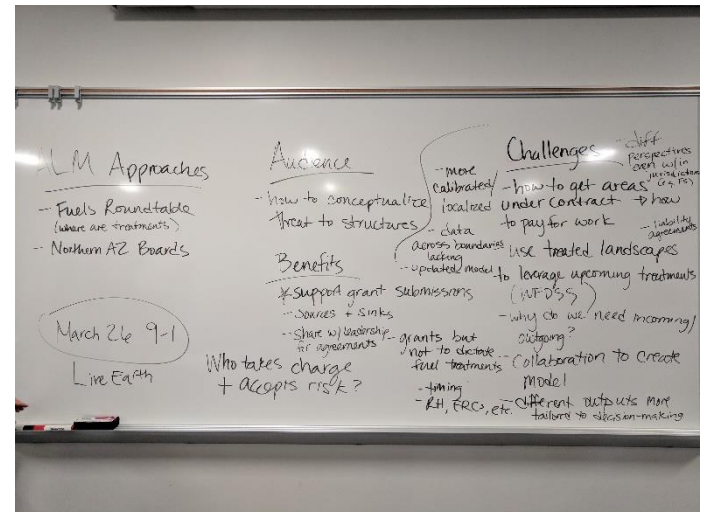 ALM Approaches
- Fuels Roundtable
(where are treatments)
- Northern AZ Boards
March 26 9-1
Live Earth
Audience
- how to conceptualize
threat to structures
Benefits
* support grant submissions
- Sources + Sinks
- Share w/ leadership
for agreements
Who takes charge
+ accepts risk?
- more
calibrated/
localized
- data
across boundaries
lacking
- updated model
- grants but
not to dictate
fuel treatments
- timing
- RH, ERCs, etc.
Challenges
- diff
perspectives
even w/in
jurisdiction
(e.g. FS)
- how to get areas
under contract → how
to pay for work
- liability
agreements
- use treated landscapes
to leverage upcoming treatments
(WFDSS)
- why do we need incoming/
outgoing?
- Collaboration to create
model
- different outputs more
tailored to decision-making